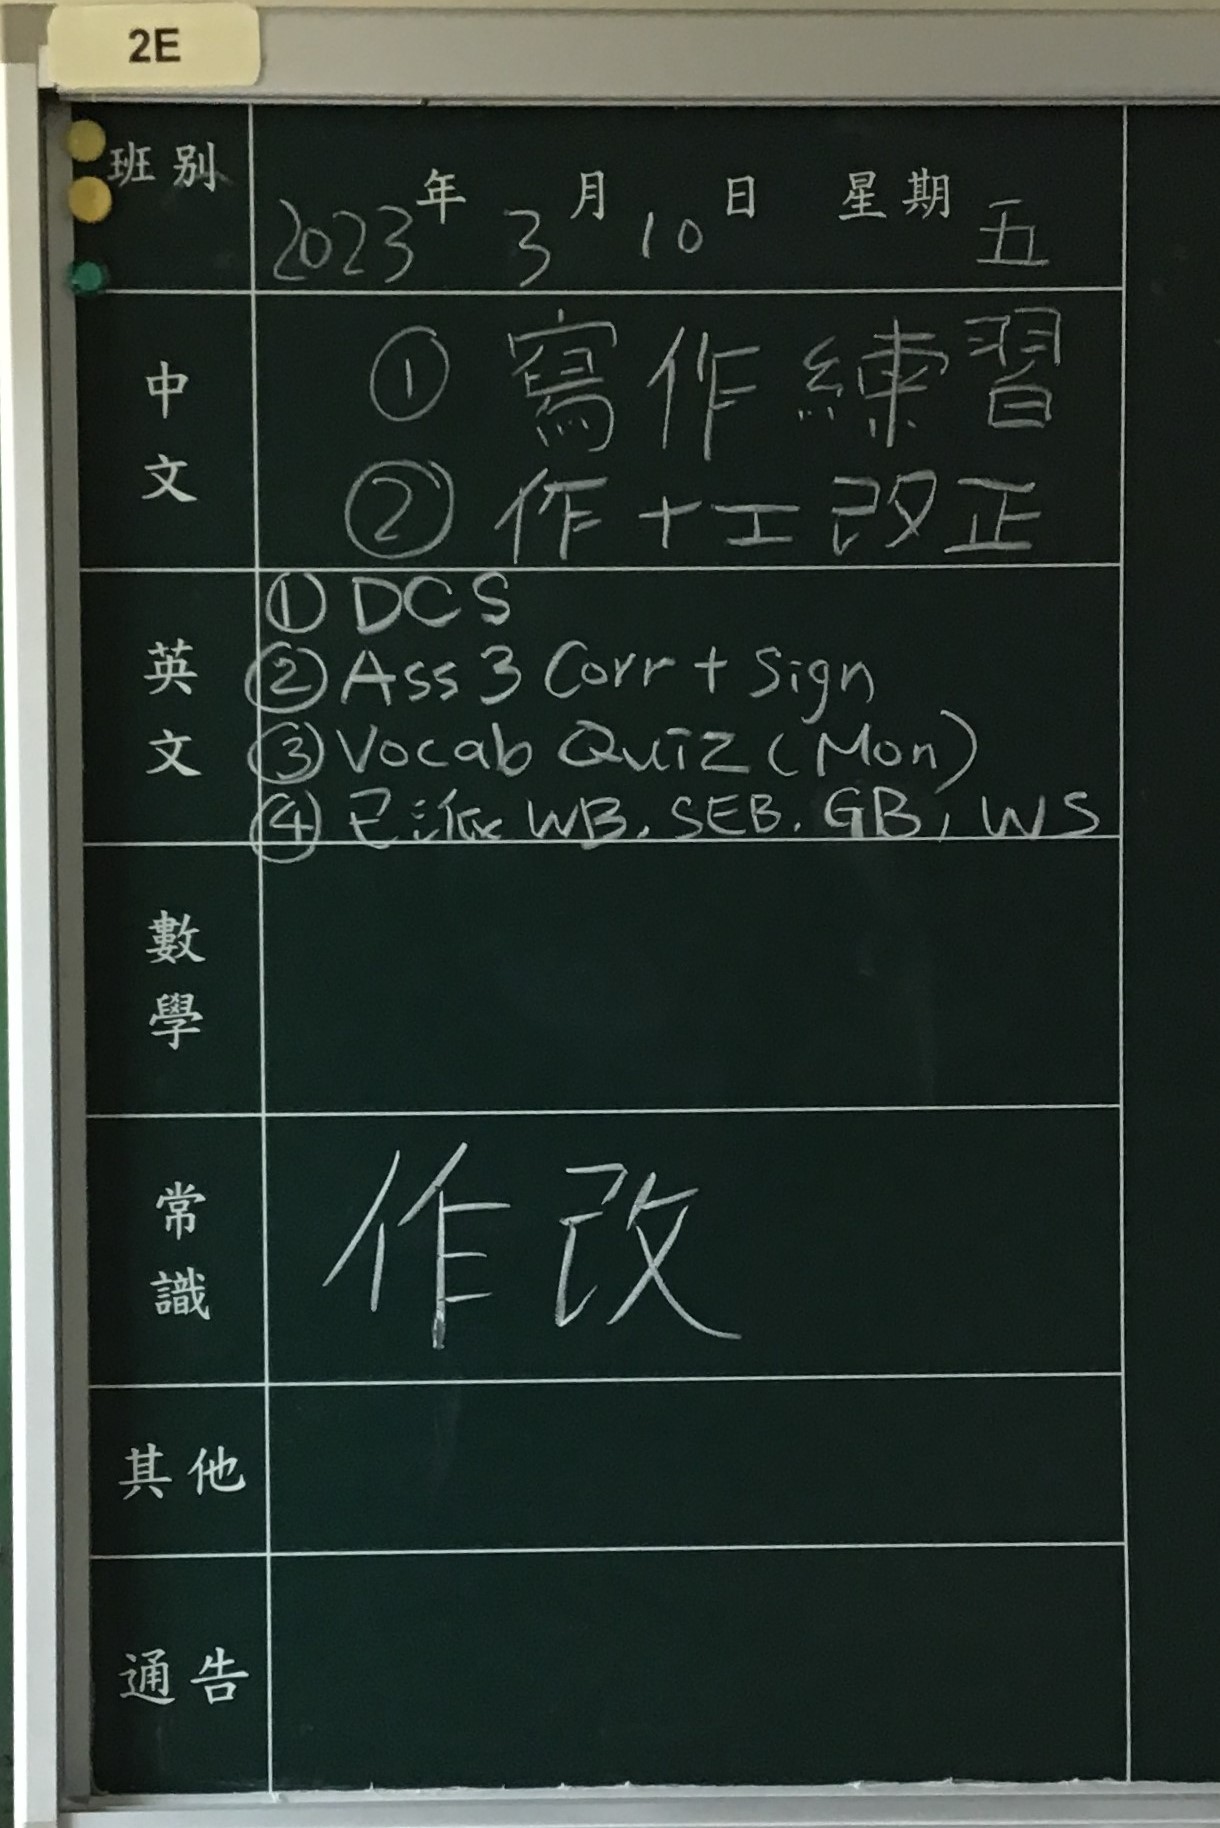 2E
班別
年 月 日 星期
2023 3 10 五
中文
① 寫作練習
② 作+工改正
英文
① DCS
② Ass 3 Corr + Sign
③ Vocab Quiz (Mon)
④ 已派 WB, SEB, GB, WS
數學
常識
作改
其他
通告